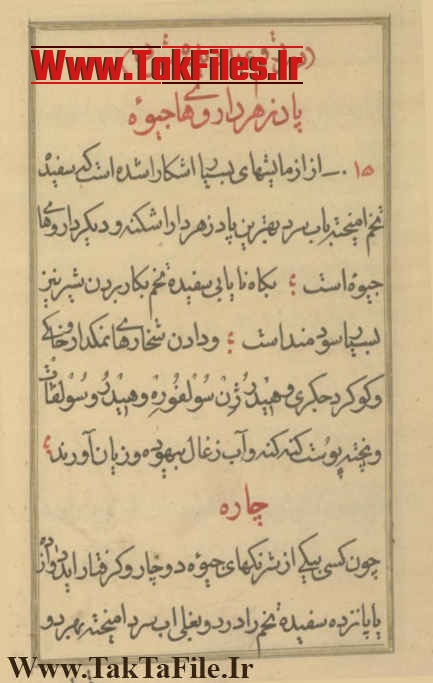 www.TakFiles.Ir
پادزهر داروهای جیوهٔ
۱۵ . ــ از ازمایشهای بسیار اشکارا شده است که سفیدهٔ
تخم امیخته باب سرد بهترین پادزهر دارا شکنه و دیگر داروهای
جیوه است ؛ بگاه نایابی سفیدهٔ تخم بکار بردن شیر نیز
بسیار سودمند است ؛ و دادن شخارهای نمکدار خاکی
و کوکرد جکری و هیدرژن سولفوره و هیدروسولفات
و پخته پوست کنه کنه و آب زغال بیهوده و زیان آورند ؛
چاره
چون کسی بیکی از نمکهای جیوه دوچار و کرفتار اید
یا پانزده سفیدهٔ تخم را در دو بغلی اب سرد امیخته بهر دو
Www.TakTaFile.Ir